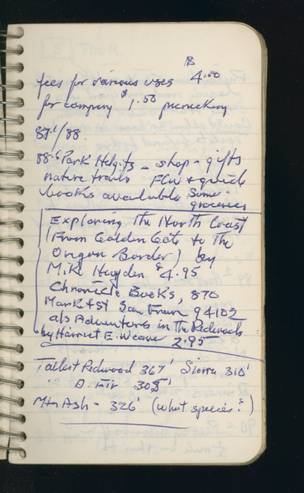 $
fees for various uses 4.00
for camping $1.50 picnicking
87.1/88
88.6 Park Hdqts - shop - gifts
nature trails Flw + guide
books available some
groceries
Exploring the North Coast
(From Golden Gate to the
Oregon Border) by
Mike Hayden $4.95
Chronicle Books, 870
Market St San Fran 94102
als Adventures in the Redwoods
by Harriet E. Weaver 2.95
Tallest Redwood 367' Sierra 310'
D. Fir 305'
Mtn Ash - 326' (what species?)